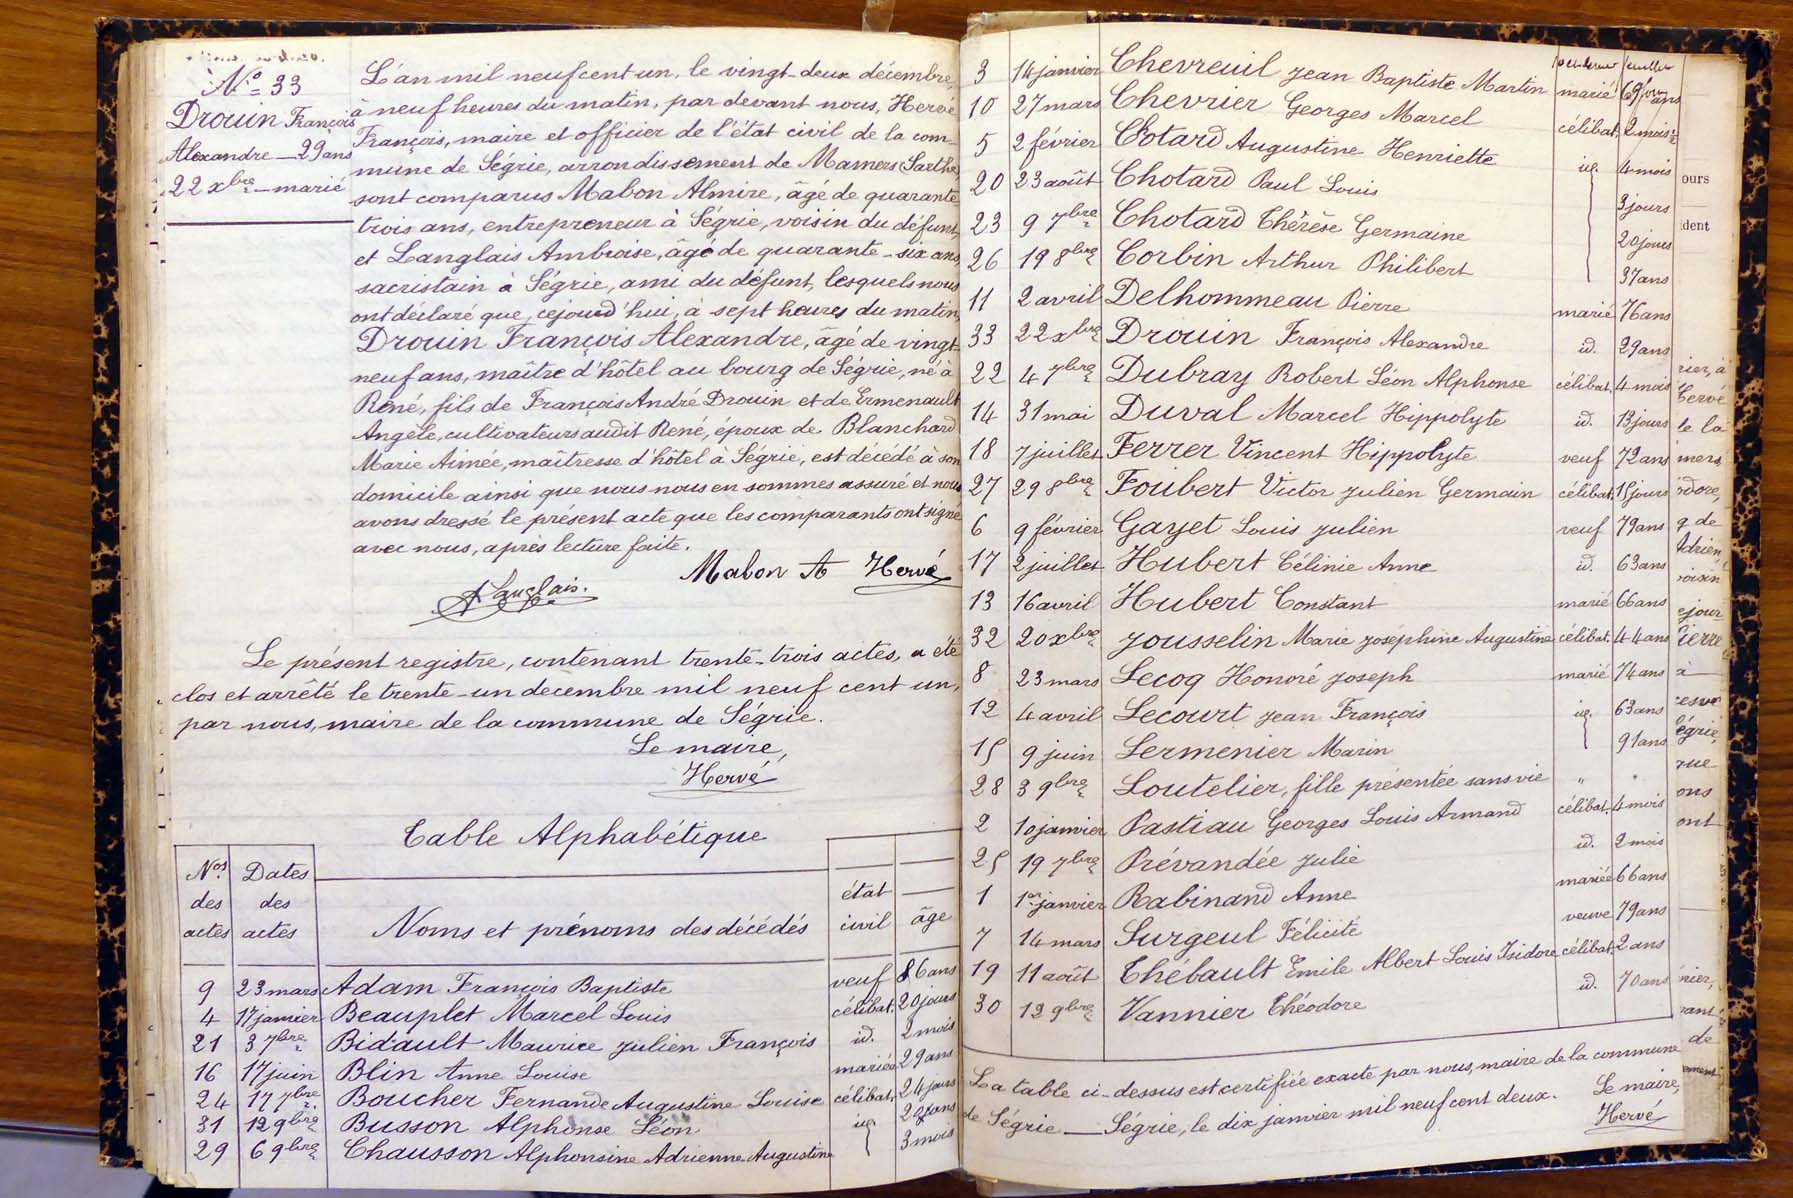 Nº 33
Drouin François
Alexandre — 29 ans
22 xbre — marié
L'an mil neuf cent un, le vingt-deux décembre,
à neuf heures du matin, par devant nous, Hervé
François, maire et officier de l'état civil de la com-
mune de Ségrie, arrondissement de Mamers (Sarthe)
sont comparus Mabon Almire, âgé de quarante
trois ans, entrepreneur à Ségrie, voisin du défunt,
et Langlais Ambroise, âgé de quarante-six ans,
sacristain à Ségrie, ami du défunt, lesquels nous
ont déclaré que, cejourd'hui, à sept heures du matin,
Drouin François Alexandre, âgé de vingt-
neuf ans, maître d'hôtel au bourg de Ségrie, né à
René, fils de François André Drouin et de Ermenault
Angèle, cultivateurs audit René, époux de Blanchard
Marie Aimée, maîtresse d'hôtel à Ségrie, est décédé à son
domicile ainsi que nous nous en sommes assuré et nous
avons dressé le présent acte que les comparants ont signé
avec nous, après lecture faite.
Mabon A Hervé
A Langlais.
Le présent registre, contenant trente-trois actes, a été
clos et arrêté le trente-un décembre mil neuf cent un,
par nous, maire de la commune de Ségrie.
Le maire,
Hervé
Table Alphabétique
Nos des actes | Dates des actes | Noms et prénoms des décédés | état civil | âge
9 23 mars Adam François Baptiste veuf 86 ans
4 17 janvier Beauplet Marcel Louis célibat. 20 jours
21 3 7bre Bidault Maurice Julien François id. 2 mois
16 17 juin Blin Anne Louise mariée 29 ans
24 17 7bre Boucher Fernande Augustine Louise célibat. 24 jours
31 12 9bre Busson Alphonse Léon id. 22 ans
29 6 9bre Chausson Alphonsine Adrienne Augustine 3 mois
3 14 janvier Chevreuil Jean Baptiste Martin marié 69 ans
10 27 mars Chevrier Georges Marcel célibat. 2 mois
5 2 février Cotard Augustine Henriette id. 4 mois
20 23 août Chotard Paul Louis 3 jours
23 9 7bre Chotard Thérèse Germaine 20 jours
26 19 8bre Corbin Arthur Philibert 37 ans
11 2 avril Delhommeau Pierre marié 76 ans
33 22 xbre Drouin François Alexandre id. 29 ans
22 4 7bre Dubray Robert Léon Alphonse célibat. 4 mois
14 31 mai Duval Marcel Hippolyte id. 13 jours
18 7 juillet Ferrer Vincent Hippolyte veuf 72 ans
27 29 8bre Foubert Victor Julien Germain célibat. 15 jours
6 9 février Gayet Louis Julien veuf 79 ans
17 2 juillet Hubert Célinie Anne id. 63 ans
13 16 avril Hubert Constant marié 66 ans
32 20 xbre Jousselin Marie Joséphine Augustine célibat. 44 ans
8 23 mars Lecoq Honoré Joseph marié 74 ans
12 4 avril Lecourt Jean François id. 63 ans
15 9 juin Lermenier Marin 91 ans
28 3 9bre Loutelier, fille présentée sans vie " "
2 10 janvier Pastiau Georges Louis Armand célibat. 4 mois
25 19 7bre Prévandée Julie id. 2 mois
1 1er janvier Rabinand Anne mariée 66 ans
7 14 mars Surgeul Félicité veuve 79 ans
19 11 août Thébault Emile Albert Louis Isidore célibat. 2 ans
30 12 9bre Vannier Théodore id. 70 ans
La table ci-dessus est certifiée exacte par nous, maire de la commune
de Ségrie — Ségrie, le dix janvier mil neuf cent deux.
Le maire,
Hervé
ours
ident